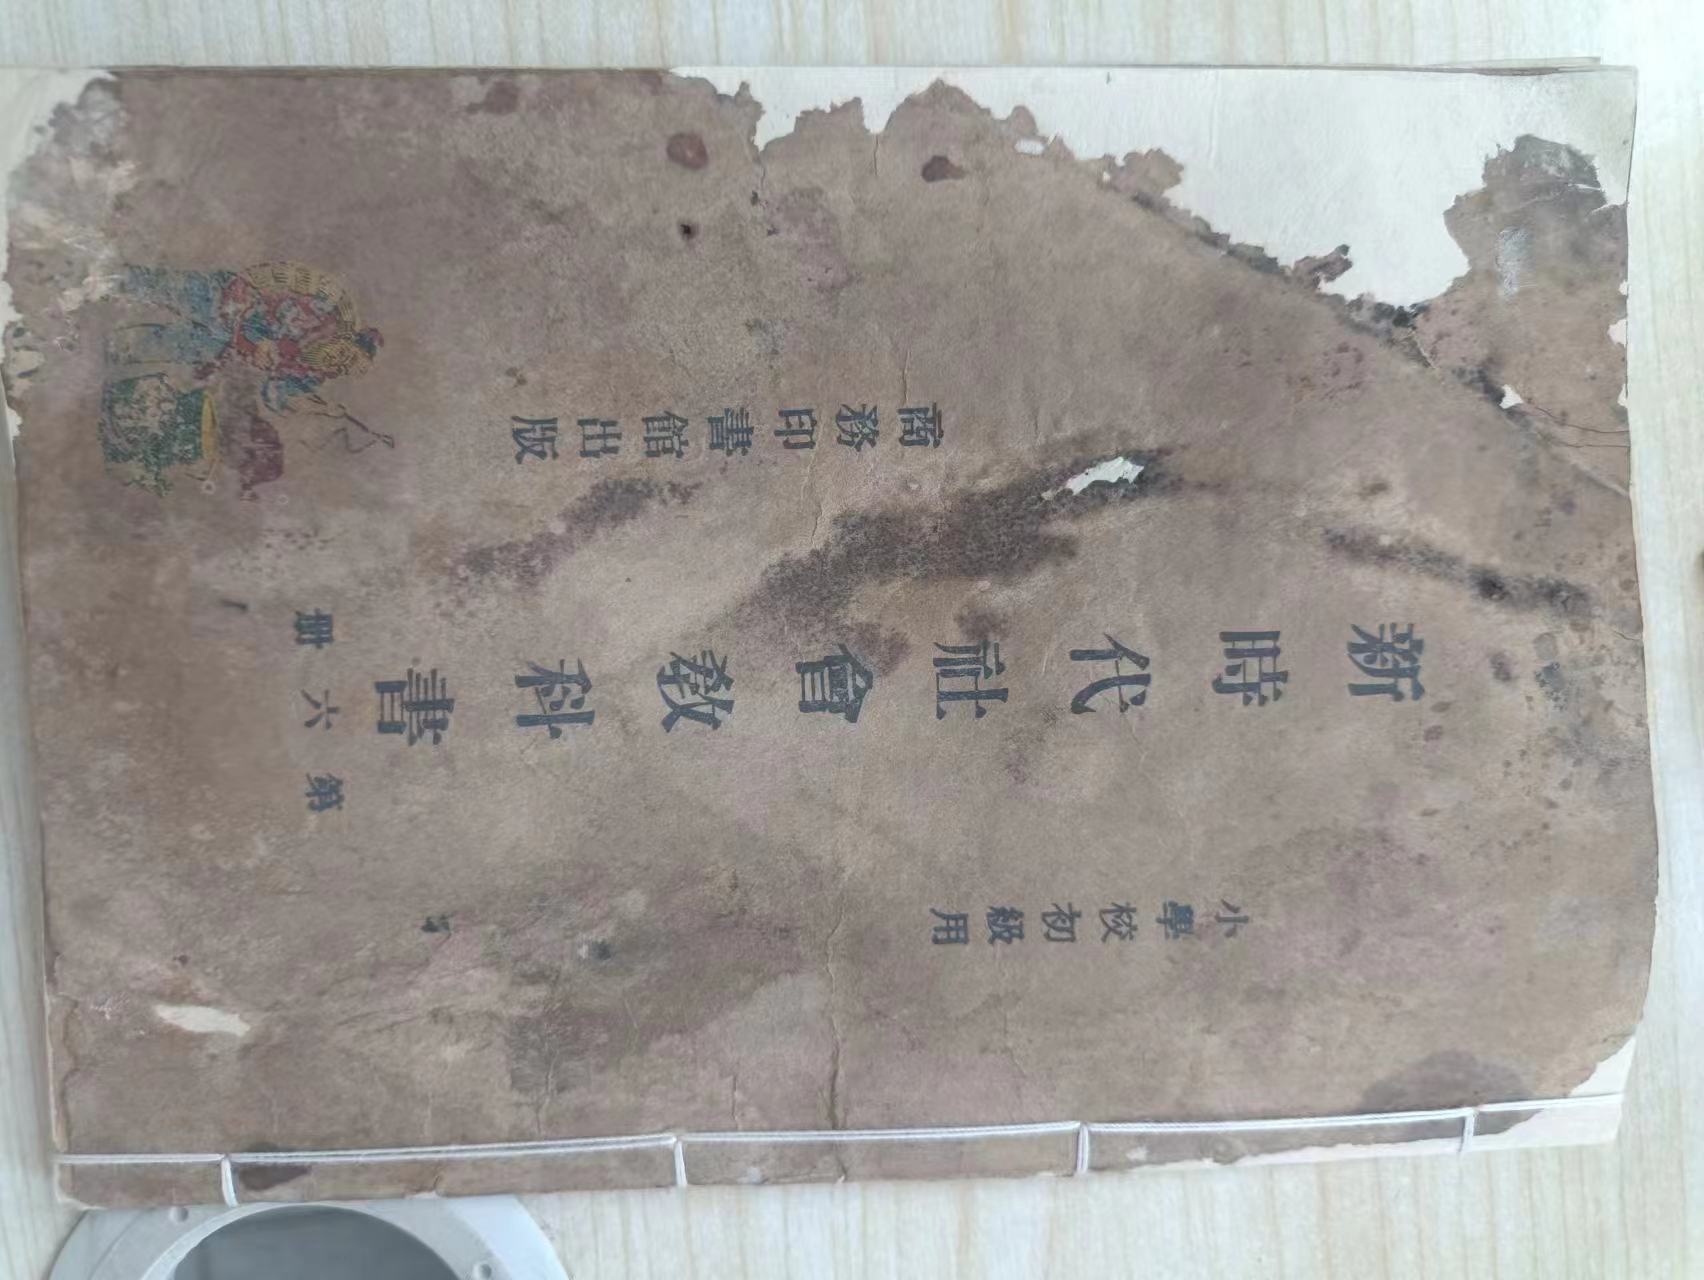 小學校初級用
新時代社會教科書
第六册
商務印書館出版